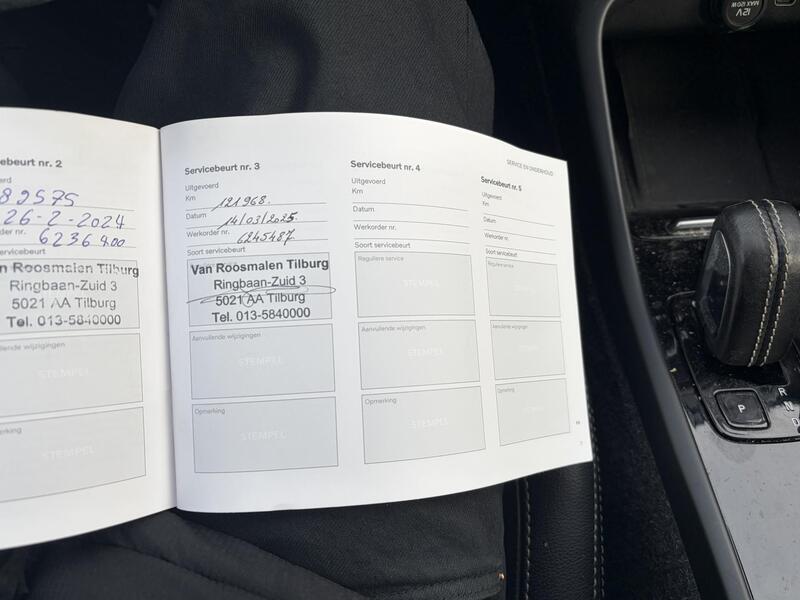 12V
MAX 120W
SERVICE EN ONDERHOUD
ebeurt nr. 2
erd
89575
26-2-2024
der nr.
6236400
ervicebeurt
n Roosmalen Tilburg
Ringbaan-Zuid 3
5021 AA Tilburg
Tel. 013-5840000
llende wijzigingen
STEMPEL
erking
STEMPEL
Servicebeurt nr. 3
Uitgevoerd
Km 121968.
Datum 14/03/2025.
Werkorder nr. 6245487.
Soort servicebeurt
Van Roosmalen Tilburg
Ringbaan-Zuid 3
5021 AA Tilburg
Tel. 013-5840000
Aanvullende wijzigingen
STEMPEL
Opmerking
STEMPEL
Servicebeurt nr. 4
Uitgevoerd
Km
Datum
Werkorder nr.
Soort servicebeurt
Reguliere service
STEMPEL
Aanvullende wijzigingen
STEMPEL
Opmerking
STEMPEL
Servicebeurt nr. 5
Uitgevoerd
Km
Datum
Werkorder nr.
Soort servicebeurt
Reguliere service
STEMPEL
Aanvullende wijzigingen
STEMPEL
Opmerking
STEMPEL
P
R
N
D